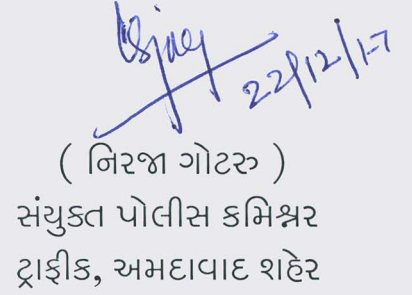 22/12/17
( નિરજા ગોટરુ )
સંયુક્ત પોલીસ કમિશ્નર
ટ્રાફીક, અમદાવાદ શહેર